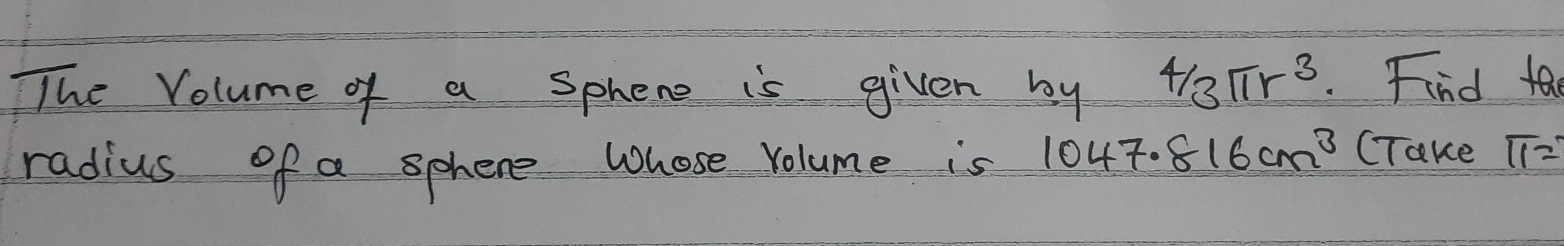 The Volume of a Sphene is given by 4/3 πr³. Find the
radius of a sphere whose Volume is 1047.816cm³ (Take π=